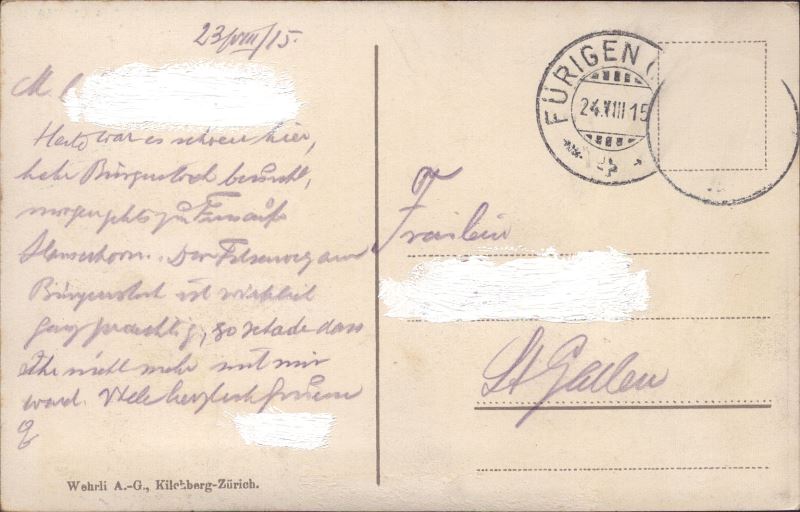 23/VIII/15.
M.
Heute war es schön hier,
habe Bürgenstock besucht,
morgen gehts zu Fuss aufs
Stanserhorn. Der Felsenweg am
Bürgenstock ist wirklich
ganz prächtig, so schade dass
Ihr nicht mehr mit mir
ward. Viele herzliche Grüsse
FÜRIGEN
24.VIII 15
Fräulein
St Gallen
Wehrli A.-G., Kilchberg-Zürich.